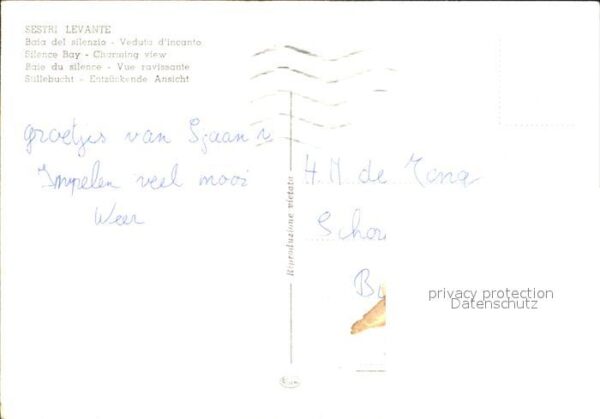 SESTRI LEVANTE
Baia del silenzio - Veduta d'incanto
Silence Bay - Charming view
Baie du silence - Vue ravissante
Stillebucht - Entzückende Ansicht
groetjes van Sjaan
Impelen veel mooi
Weer
Riproduzione vietata
H. M. de Jong
Scho
B
privacy protection
Datenschutz